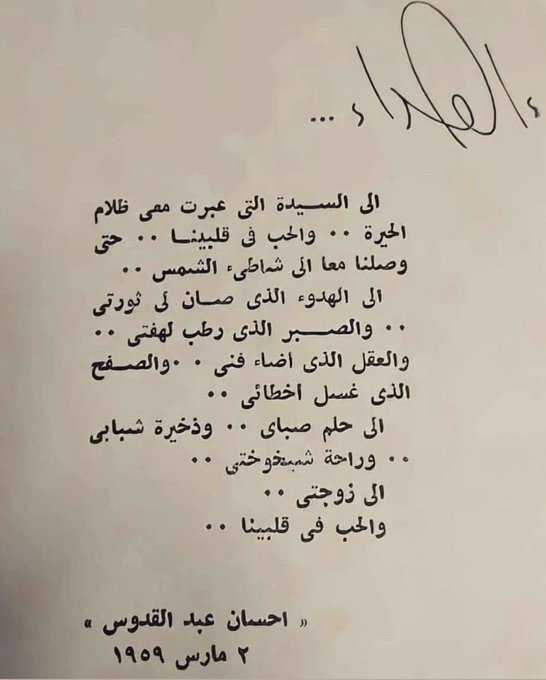 إهداء ...
الى السيدة التى عبرت معى ظلام
الحيرة .. والحب فى قلبينا .. حتى
وصلنا معا الى شاطىء الشمس ..
الى الهدوء الذى صان لى ثورتى
.. والصبر الذى رطب لهفتى ..
والعقل الذى أضاء فنى .. والصفح
الذى غسل أخطائى ..
الى حلم صباى .. وذخيرة شبابى
.. وراحة شيخوختى ..
الى زوجتى ..
والحب فى قلبينا ..
« احسان عبد القدوس »
٢ مارس ١٩٥٩